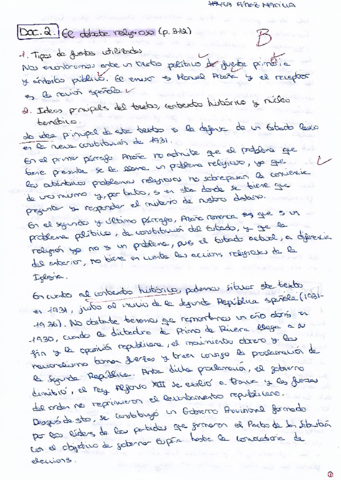 Doc. 2. El debate religioso (p. 312)
B
1. Tipos de fuentes utilizadas
Nos encontramos ante un texto político de fuente primaria
y ámbito público. El emisor es Manuel Azaña y el receptor
es la nación española.
2. Ideas principales del texto, contexto histórico y núcleo
temático.
La idea principal de este texto es la defensa de un Estado laico
en la nueva constitución de 1931.
En el primer párrafo, Azaña no admite que el problema que
tiene presente se le llame un problema religioso, ya que
los auténticos problemas religiosos no sobrepasan la conciencia
de uno mismo y, por tanto, es en ella donde se tiene que
preguntar y responder el misterio de nuestro destino.
En el segundo y último párrafo, Azaña que es un
problema político, de constitución del Estado, y que la
religión ya no es un problema, pues el Estado actual, a diferencia
del anterior, no tiene en cuenta las acciones religiosas de la
Iglesia.
En cuanto al contexto histórico, podemos situar este texto
en 1931, justo al inicio de la Segunda República Española (1931-
1936). No obstante tenemos que remontarnos un año atrás, en
1930, cuando la dictadura de Primo de Rivera llega a su
fin y la oposición republicana, el movimiento obrero y los
nacionalismos toman fuerza y traen consigo la proclamación de
la Segunda República. Ante dicha proclamación, el gobierno
dimitió, el rey Alfonso XIII se exilió a Francia y las fuerzas
del orden no reprimieron el levantamiento republicano.
Después de esto, se constituyó un Gobierno Provisional formado
por los líderes de los partidos que firmaron el Pacto de San Sebastián
con el objetivo de gobernar España hasta la convocatoria de
elecciones.